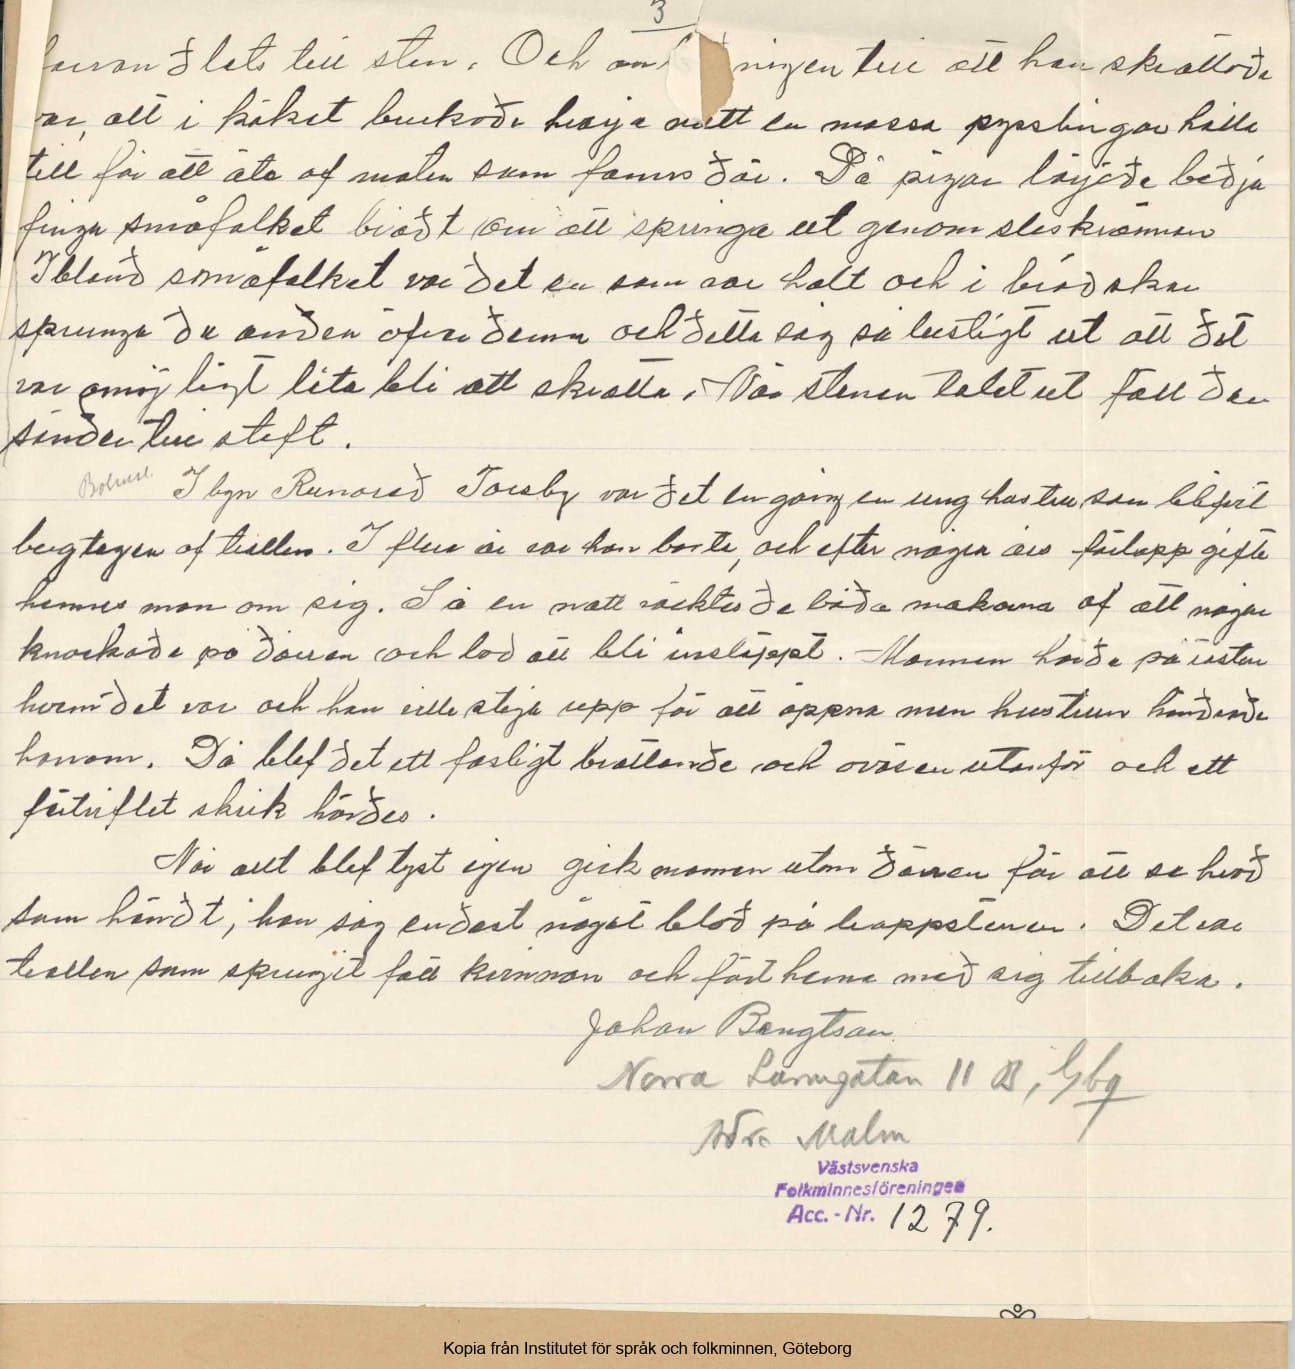 3
förvandlats till sten. Och anledningen till att han skrattade
var, att i köket brukade hvarje natt en massa pysslingar hålla
till för att äta af maten som fanns där. Då pigan började bedja
finga småfolket brådt om att springa ut genom slaskrännan
Ibland småfolket var det en som var halt och i brådskan
sprungo de andra öfver denna och detta såg så lustigt ut att det
var omöjligt låta bli att skratta. När stenen talat ut föll den
sönder till stoft.
Bohusl.
I byn Runarød Torsby var det en gång en ung hustru som blifvit
bergtagen af trollen. I flera år var hon borta, och efter några års förlopp gifte
hennes man om sig. Så en natt väcktes de båda makarna af att någon
knackade på dörren och bad att bli insläppt. Mannen hörde på rösten
hvem det var och han ville stiga upp för att öppna men hustrun hindrade
honom. Då blef det ett fasligt brållande och oväsen utanför och ett
förtviflat skrik hördes.
När allt blef tyst igen gick mannen utom dörren för att se hvad
som händt; han såg endast något blod på trappstenen. Det var
trollen som sprungit fatt kvinnan och fört henne med sig tillbaka.
Johan Bengtsson
Norra Larmgatan 11 B, Gbg
Adr. Malm
Västsvenska
Folkminnesföreningen
Acc.-Nr. 1279.
Kopia från Institutet för språk och folkminnen, Göteborg